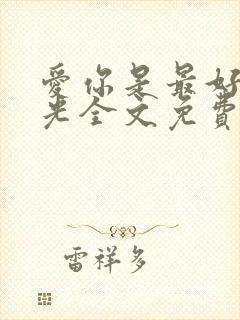 爱你是最好
光全文免费
雷祥多